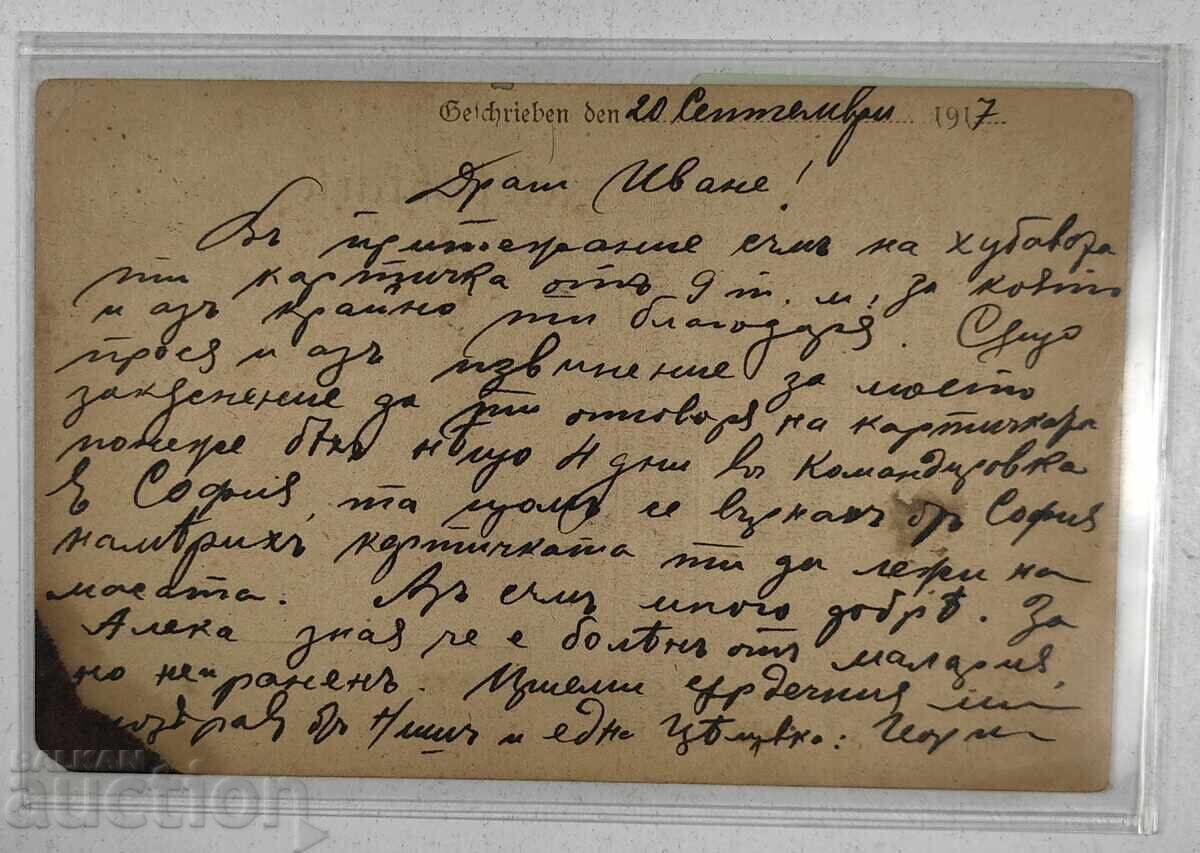 Geschrieben den 20 Септември 1917
Драги Иване!
Въ притежание съмъ на хубавата
ти картичка отъ 9 т. м., за която
и азъ крайно ти благодаря. Също
прося и азъ извинение за моето
закъснение да ти отговоря на картичката
понеже бѣхъ нѣщо 4 дни въ командировка
в София, та щомъ се върнахъ отъ София
намѣрихъ картичката ти да лежи на
масата. Азъ съмъ много добрѣ. За
Алека зная че е боленъ отъ малария,
но не раненъ. Приеми сърдечния ми
поздравъ отъ Нишъ и една цѣлувка: Георги
BALKAN
auction